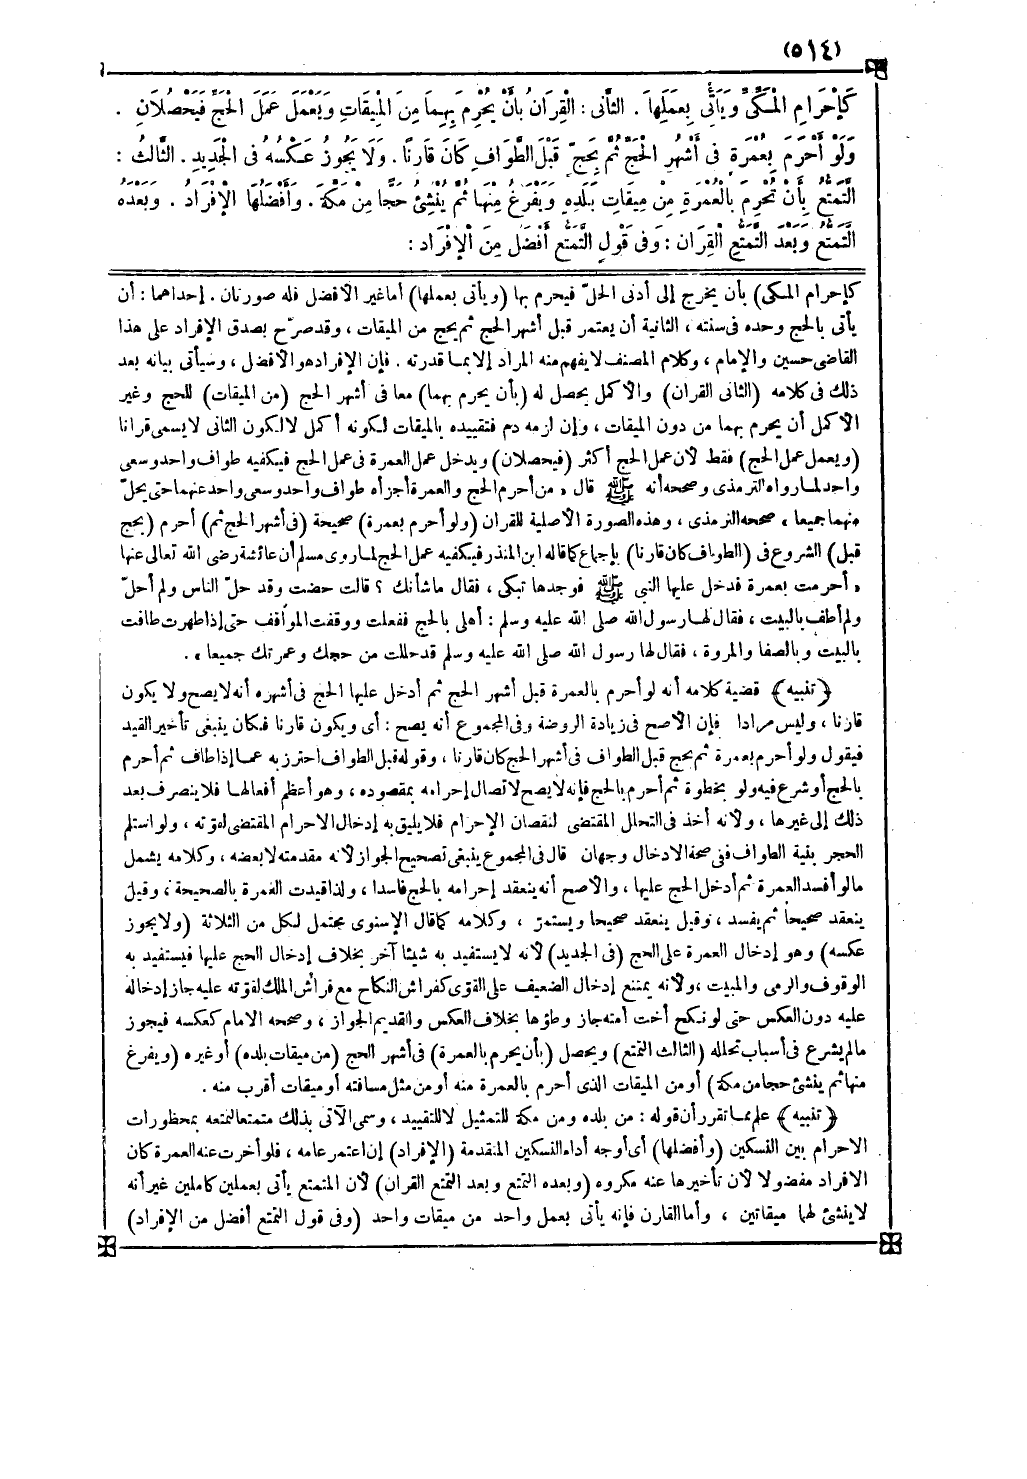 (٥١٤)
كَإِحْرَامِ المَكِّىِّ وَيَأْتِى بِعَمَلِهَا . الثَّانِى : الْقِرَانُ بِأَنْ يُحْرِمَ بِهِمَا مِنَ المِيقَاتِ وَيَعْمَلَ عَمَلَ الحَجِّ فَيَحْصُلَانِ .
وَلَوْ أَحْرَمَ بِعُمْرَةٍ فِى أَشْهُرِ الحَجِّ ثُمَّ بِحَجٍّ قَبْلَ الطَّوَافِ كَانَ قَارِنًا . وَلَا يَجُوزُ عَكْسُهُ فِى الجَدِيدِ . الثَّالِثُ :
التَّمَتُّعُ بِأَنْ يُحْرِمَ بِالْعُمْرَةِ مِنْ مِيقَاتِ بَلَدِهِ وَيَفْرَغَ مِنْهَا ثُمَّ يُنْشِئَ حَجًّا مِنْ مَكَّةَ . وَأَفْضَلُهَا الْإِفْرَادُ . وَبَعْدَهُ
التَّمَتُّعُ وَبَعْدَ التَّمَتُّعِ الْقِرَانُ : وَفِى قَوْلٍ التَّمَتُّعُ أَفْضَلُ مِنَ الْإِفْرَادِ :
كإحرام المكى) بأن يخرج إلى أدنى الحلّ فيحرم بها (ويأتى بعملها) أما غير الأفضل فله صورتان . إحداهما : أن
يأتى بالحج وحده فى سنته ، الثانية أن يعتمر قبل أشهر الحج ثم يحج من الميقات ، وقد صرّح بصدق الإفراد على هذا
القاضى حسين والإمام ، وكلام المصنف لا يفهم منه المراد إلا بما قدرته . فإن الإفراد هو الأفضل ، وسيأتى بيانه بعد
ذلك فى كلامه (الثانى القران) والأكمل يحصل له (بأن يحرم بهما) معا فى أشهر الحج (من الميقات) للحج وغير
الأكمل أن يحرم بهما من دون الميقات ، وإن لزمه دم فتقييده بالميقات لكونه أكمل لا لكون الثانى لا يسمى قرانا
(ويعمل عمل الحج) فقط لأن عمل الحج أكثر (فيحصلان) ويدخل عمل العمرة فى عمل الحج فيكفيه طواف واحد وسعى
واحد لما رواه الترمذى وصححه أنه ﷺ قال « من أحرم بالحج والعمرة أجزأه طواف واحد وسعى واحد عنهما حتى يحلّ
منهما جميعا » صححه الترمذى ، وهذه الصورة الأصلية للقران (ولو أحرم بعمرة) صحيحة (فى أشهر الحج ثم) أحرم (بحج
قبل) الشروع فى (الطواف كان قارنا) بإجماع كما قاله ابن المنذر فيكفيه عمل الحج لما روى مسلم أن عائشة رضى الله تعالى عنها
« أحرمت بعمرة فدخل عليها النبى ﷺ فوجدها تبكى ، فقال ما شأنك ؟ قالت حضت وقد حلّ الناس ولم أحلّ
ولم أطف بالبيت ، فقال لها رسول الله صلى الله عليه وسلم : أهلى بالحج ففعلت ووقفت المواقف حتى إذا طهرت طافت
بالبيت وبالصفا والمروة ، فقال لها رسول الله صلى الله عليه وسلم قد حللت من حجك وعمرتك جميعا » .
﴿تنبيه﴾ قضية كلامه أنه لو أحرم بالعمرة قبل أشهر الحج ثم أدخل عليها الحج فى أشهره أنه لا يصح ولا يكون
قارنا ، وليس مرادا فإن الأصح فى زيادة الروضة وفى المجموع أنه يصح : أى ويكون قارنا فكان ينبغى تأخير القيد
فيقول ولو أحرم بعمرة ثم بحج قبل الطواف فى أشهر الحج كان قارنا ، وقوله قبل الطواف احترز به عما إذا طاف ثم أحرم
بالحج أو شرع فيه ولو بخطوة ثم أحرم بالحج فإنه لا يصح لاتصال إحرامه بمقصوده ، وهو أعظم أفعالها فلا ينصرف بعد
ذلك إلى غيرها ، ولأنه أخذ فى التحلل المقتضى لنقصان الإحرام فلا يليق به إدخال الاحرام المقتضى لقوته ، ولو استلم
الحجر بنية الطواف ففى صحة الادخال وجهان قال فى المجموع ينبغى تصحيح الجواز لأنه مقدمته لا بعضه ، وكلامه يشمل
ما لو أفسد العمرة ثم أدخل الحج عليها ، والأصح أنه ينعقد إحرامه بالحج فاسدا ، ولذا قيدت العمرة بالصحيحة ، وقيل
ينعقد صحيحا ثم يفسد ، وقيل ينعقد صحيحا ويستمرّ ، وكلامه كما قال الإسنوى محتمل لكل من الثلاثة (ولا يجوز
عكسه) وهو إدخال العمرة على الحج (فى الجديد) لأنه لا يستفيد به شيئا آخر بخلاف إدخال الحج عليها فيستفيد به
الوقوف والرمى والمبيت ، ولأنه يمتنع إدخال الضعيف على القوى كفراش النكاح مع فراش الملك لقوته عليه جاز إدخاله
عليه دون العكس حتى لو نكح أخت أمته جاز وطؤها بخلاف العكس والقديم الجواز ، وصححه الامام كعكسه فيجوز
ما لم يشرع فى أسباب تحلله (الثالث التمتع) ويحصل (بأن يحرم بالعمرة) فى أشهر الحج (من ميقات بلده) أو غيره (ويفرغ
منها ثم ينشئ حجا من مكة) أو من الميقات الذى أحرم بالعمرة منه أو من مثل مسافته أو ميقات أقرب منه .
﴿تنبيه﴾ علم مما تقرر أن قوله : من بلده ومن مكة للتمثيل لا للتقييد ، وسمى الآتى بذلك متمتعا لتمتعه بمحظورات
الاحرام بين النسكين (وأفضلها) أى أوجه أداء النسكين المتقدمة (الإفراد) إن اعتمر عامه ، فلو أخرت عنه العمرة كان
الافراد مفضولا لأن تأخيرها عنه مكروه (وبعده التمتع وبعد التمتع القران) لأن المتمتع يأتى بعملين كاملين غير أنه
لا ينشئ لهما ميقاتين ، وأما القارن فإنه يأتى بعمل واحد من ميقات واحد (وفى قول التمتع أفضل من الإفراد)